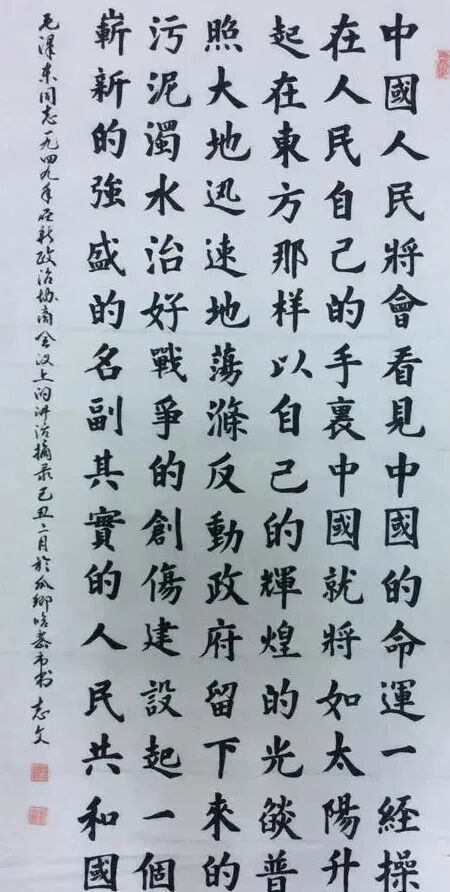 中國人民將會看見中國的命運一經操
在人民自己的手裏中國就將如太陽升
起在東方那样以自己的輝煌的光燄普
照大地迅速地蕩滌反動政府留下來的
污泥濁水治好戰爭的創傷建設起一個
嶄新的強盛的名副其實的人民共和國
毛澤东同志一九四九年在新政治协商会议上的讲话摘录己丑二月於瓜鄉哈密市书 志文